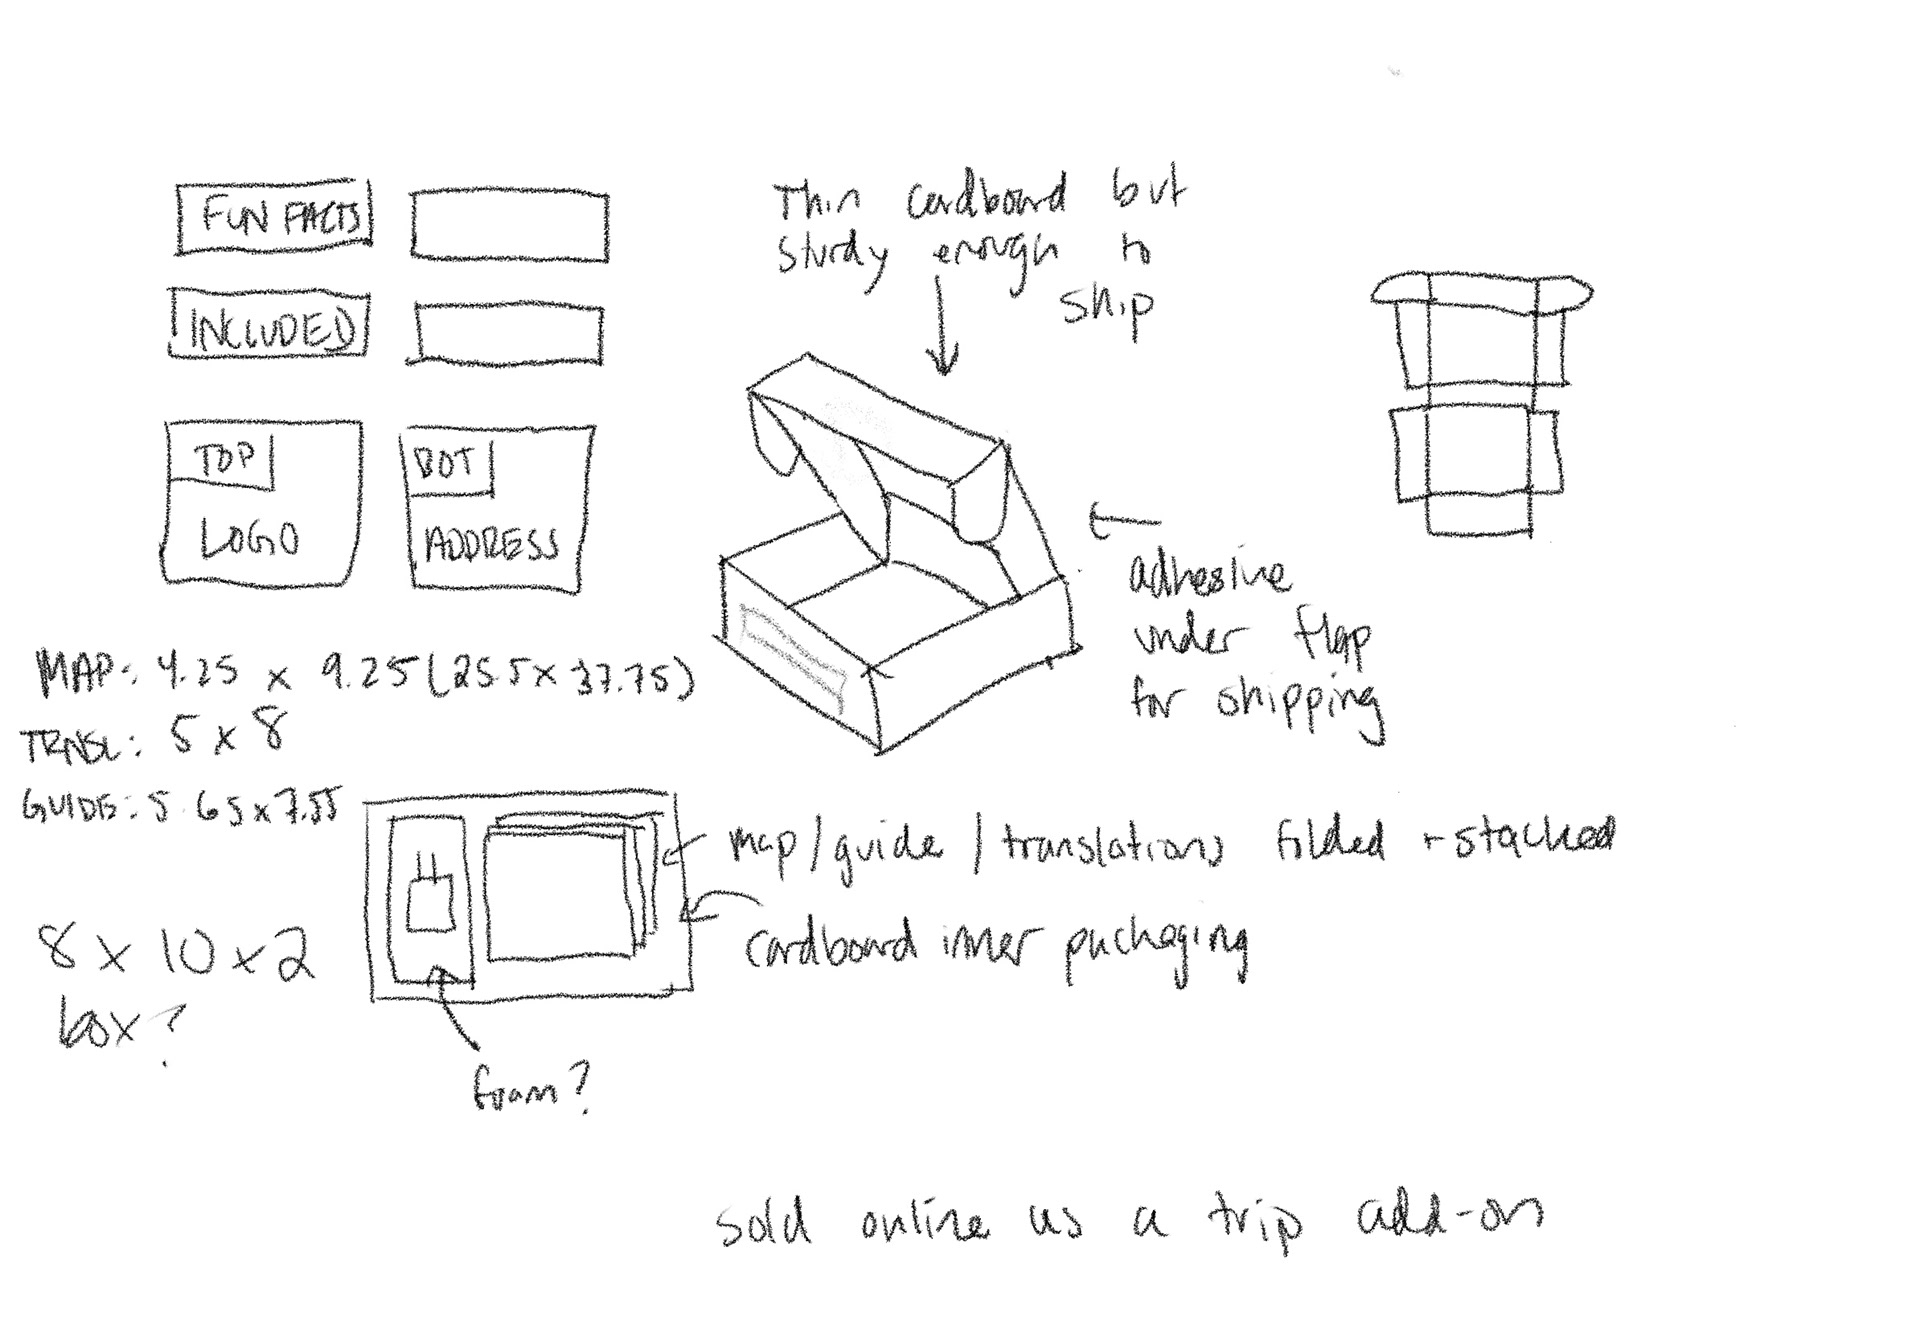 FUN FACTS
INCLUDED
TOP
LOGO
BOT
ADDRESS
Thin cardboard but
sturdy enough to
ship
adhesive
under flap
for shipping
MAP: 4.25 x 9.25 (25.5 x 37.75)
TRNSL: 5 x 8
GUIDE: 5.65 x 7.55
8 x 10 x 2
box?
map/guide/translations folded + stacked
cardboard inner packaging
foam?
sold online as a trip add-on